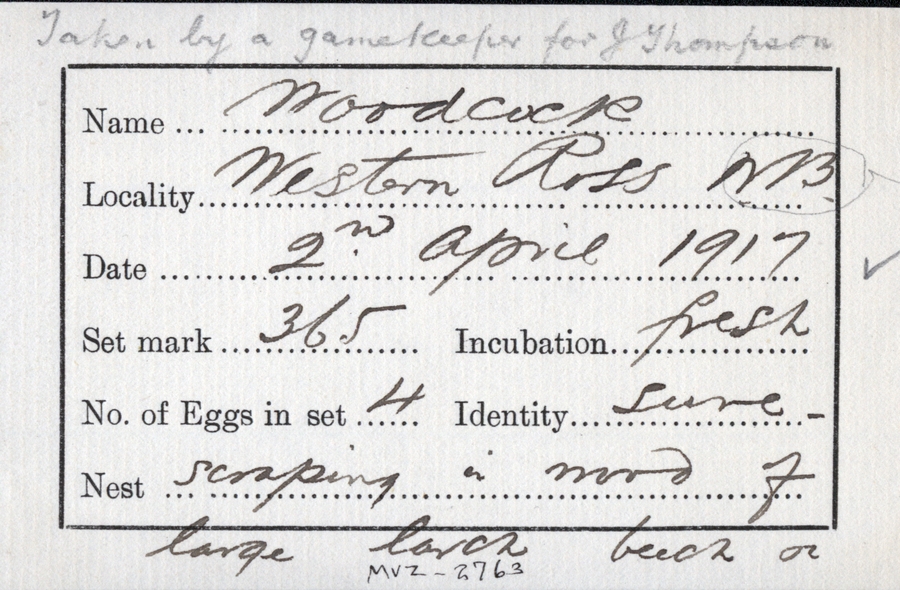 Taken by a gamekeeper for J Thompson
Name ... Woodcock
Locality ... Western Ross NB
Date ... 2nd April 1917
Set mark ... 365 Incubation ... fresh
No. of Eggs in set ... 4 Identity ... sure -
Nest ... scraping in wood of
large larch beech or
MVZ-2763